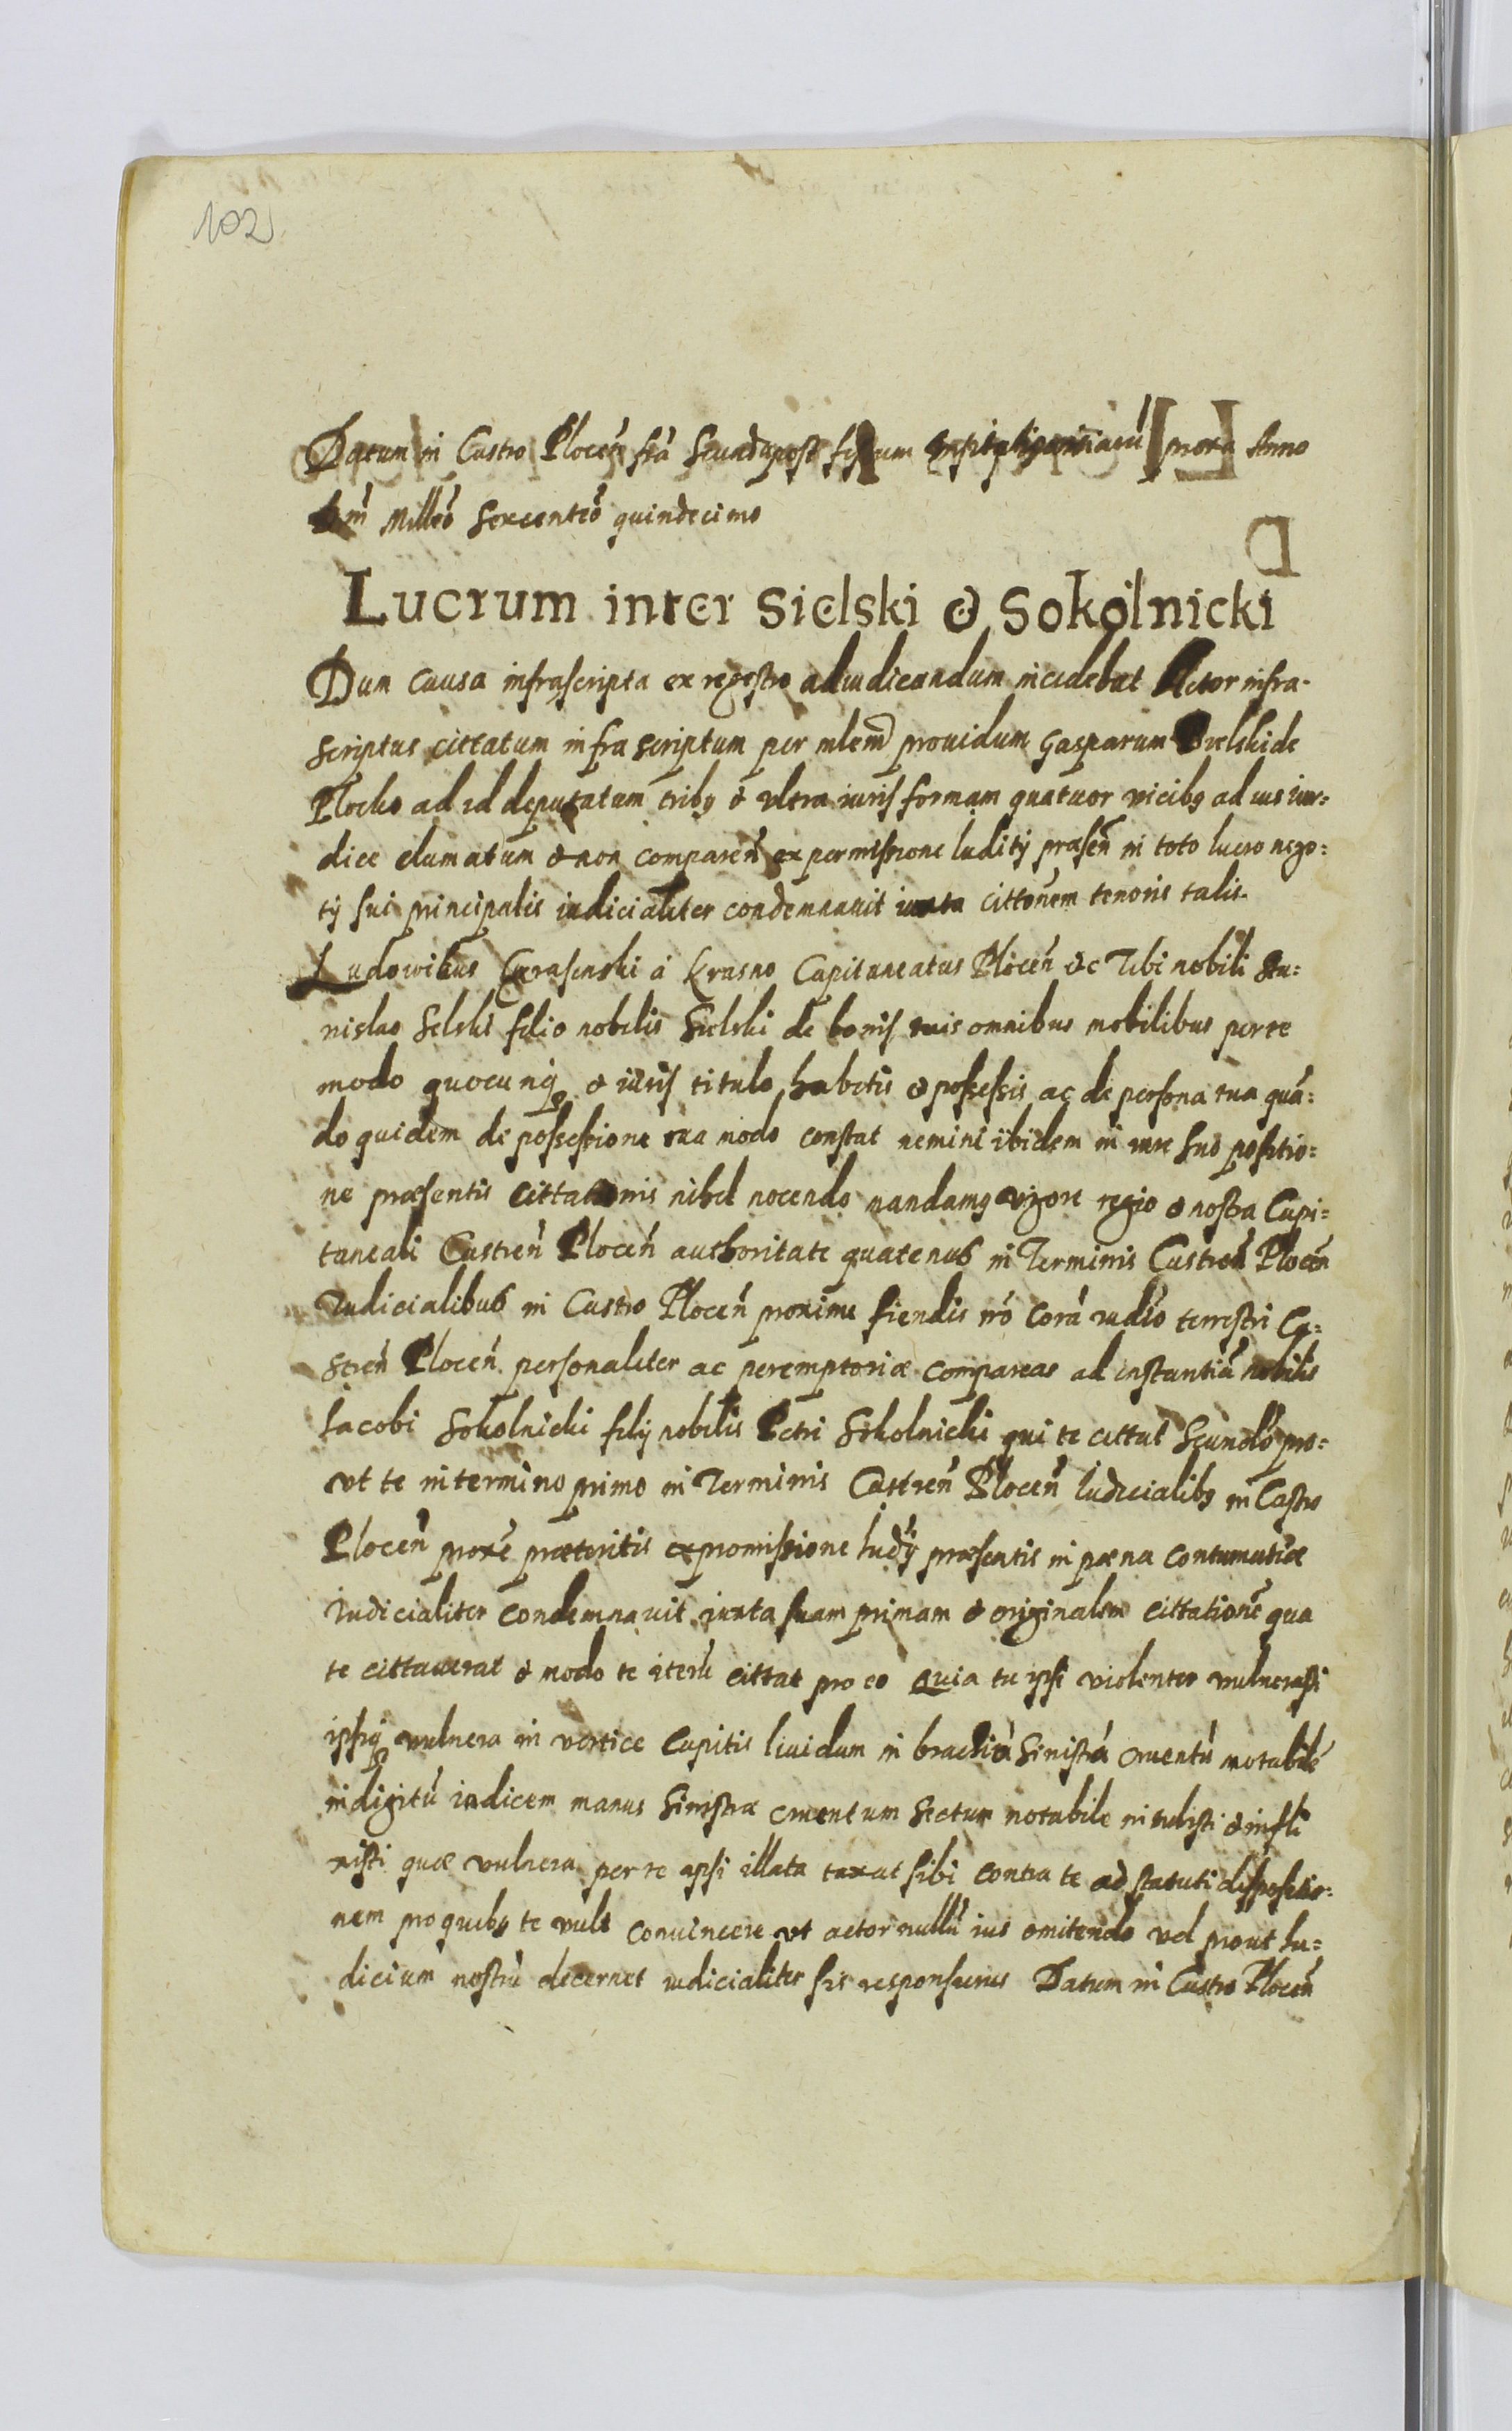 102
Datum in Castro Plocen̄ fr̄a Secūda post festum proxa Anno
Dn̄i Milleō Sexcenteō quindecimo
Lucrum inter Sielski & Sokolnicki
Dum causa infrascripta ex regestro adiudicandum incidebat Actor infra-
scriptus cittatum infra scriptum per mlem prouidum Gasparum Bielski de
Plocko ad id deputatum tribꝫ & vltra iuris formam quatuor vicibꝫ ad ius iur=
dice clamatum & non comparen̄ ex permissione Iuditÿ præsen̄ in toto lucro nego=
tÿ sui principalis iudicialiter condemnauit iuxta cittōnem tenoris talis.
Ludowikus Krasinski á Krasno Capitaneatus Plocen̄ &c Tibi nobili Sta=
nislao Selski filio nobilis Sielski de bonis tuis omnibus mobilibus per te
modo quocunqꝫ & iuris titulo habitis & possessis ac de persona tua quā=
do quidem de possessione tua modo constat nemini ibidem in iure suo positio=
ne præsentis cittationis nihil nocendo mandamꝫ vigore regio & nostra Capi=
taneali Castren̄ Plocen̄ authoritate quatenus in Terminis Castren̄ Plocen̄
Iudicialibus in Castro Plocen̄ proxime fiendis nrō corā iudio terrestri Ca=
stren̄ Plocen̄ personaliter ac peremptoriæ compareas ad instantiā nobilis
Iacobi Sokolnicki filÿ nobilis Petri Sokolnicki qui te cittat Scundō pro=
vt te in termino primo in Terminis Castren̄ Plocen̄ Iudicialibꝫ in Castro
Plocen̄ proxē præteritis ex promissione Iudÿ præsentis in pæna contumatiæ
Iudicialiter condemnauit iuxta suam primam & originalem cittationē qua
te cittauerat & modo te iterū cittat pro eo quia tu ipsi violenter vulnerasti
ipsiqꝫ vulnera in vertice capitis liuidum in brachiū sinistrā cruentū notabile
in digitū indicem manus sinistræ cruentum sectum notabile intulisti & infli
xisti quæ vulnera per te ipsi illata taxat sibi contra te ad statuti dispositio=
nem pro quibꝫ te vult conuincere vt actor nullū ius omitendo vel prout Iu=
dicium nostrū decernet iudicialiter sis responsurus Datum in Castro Plocen̄